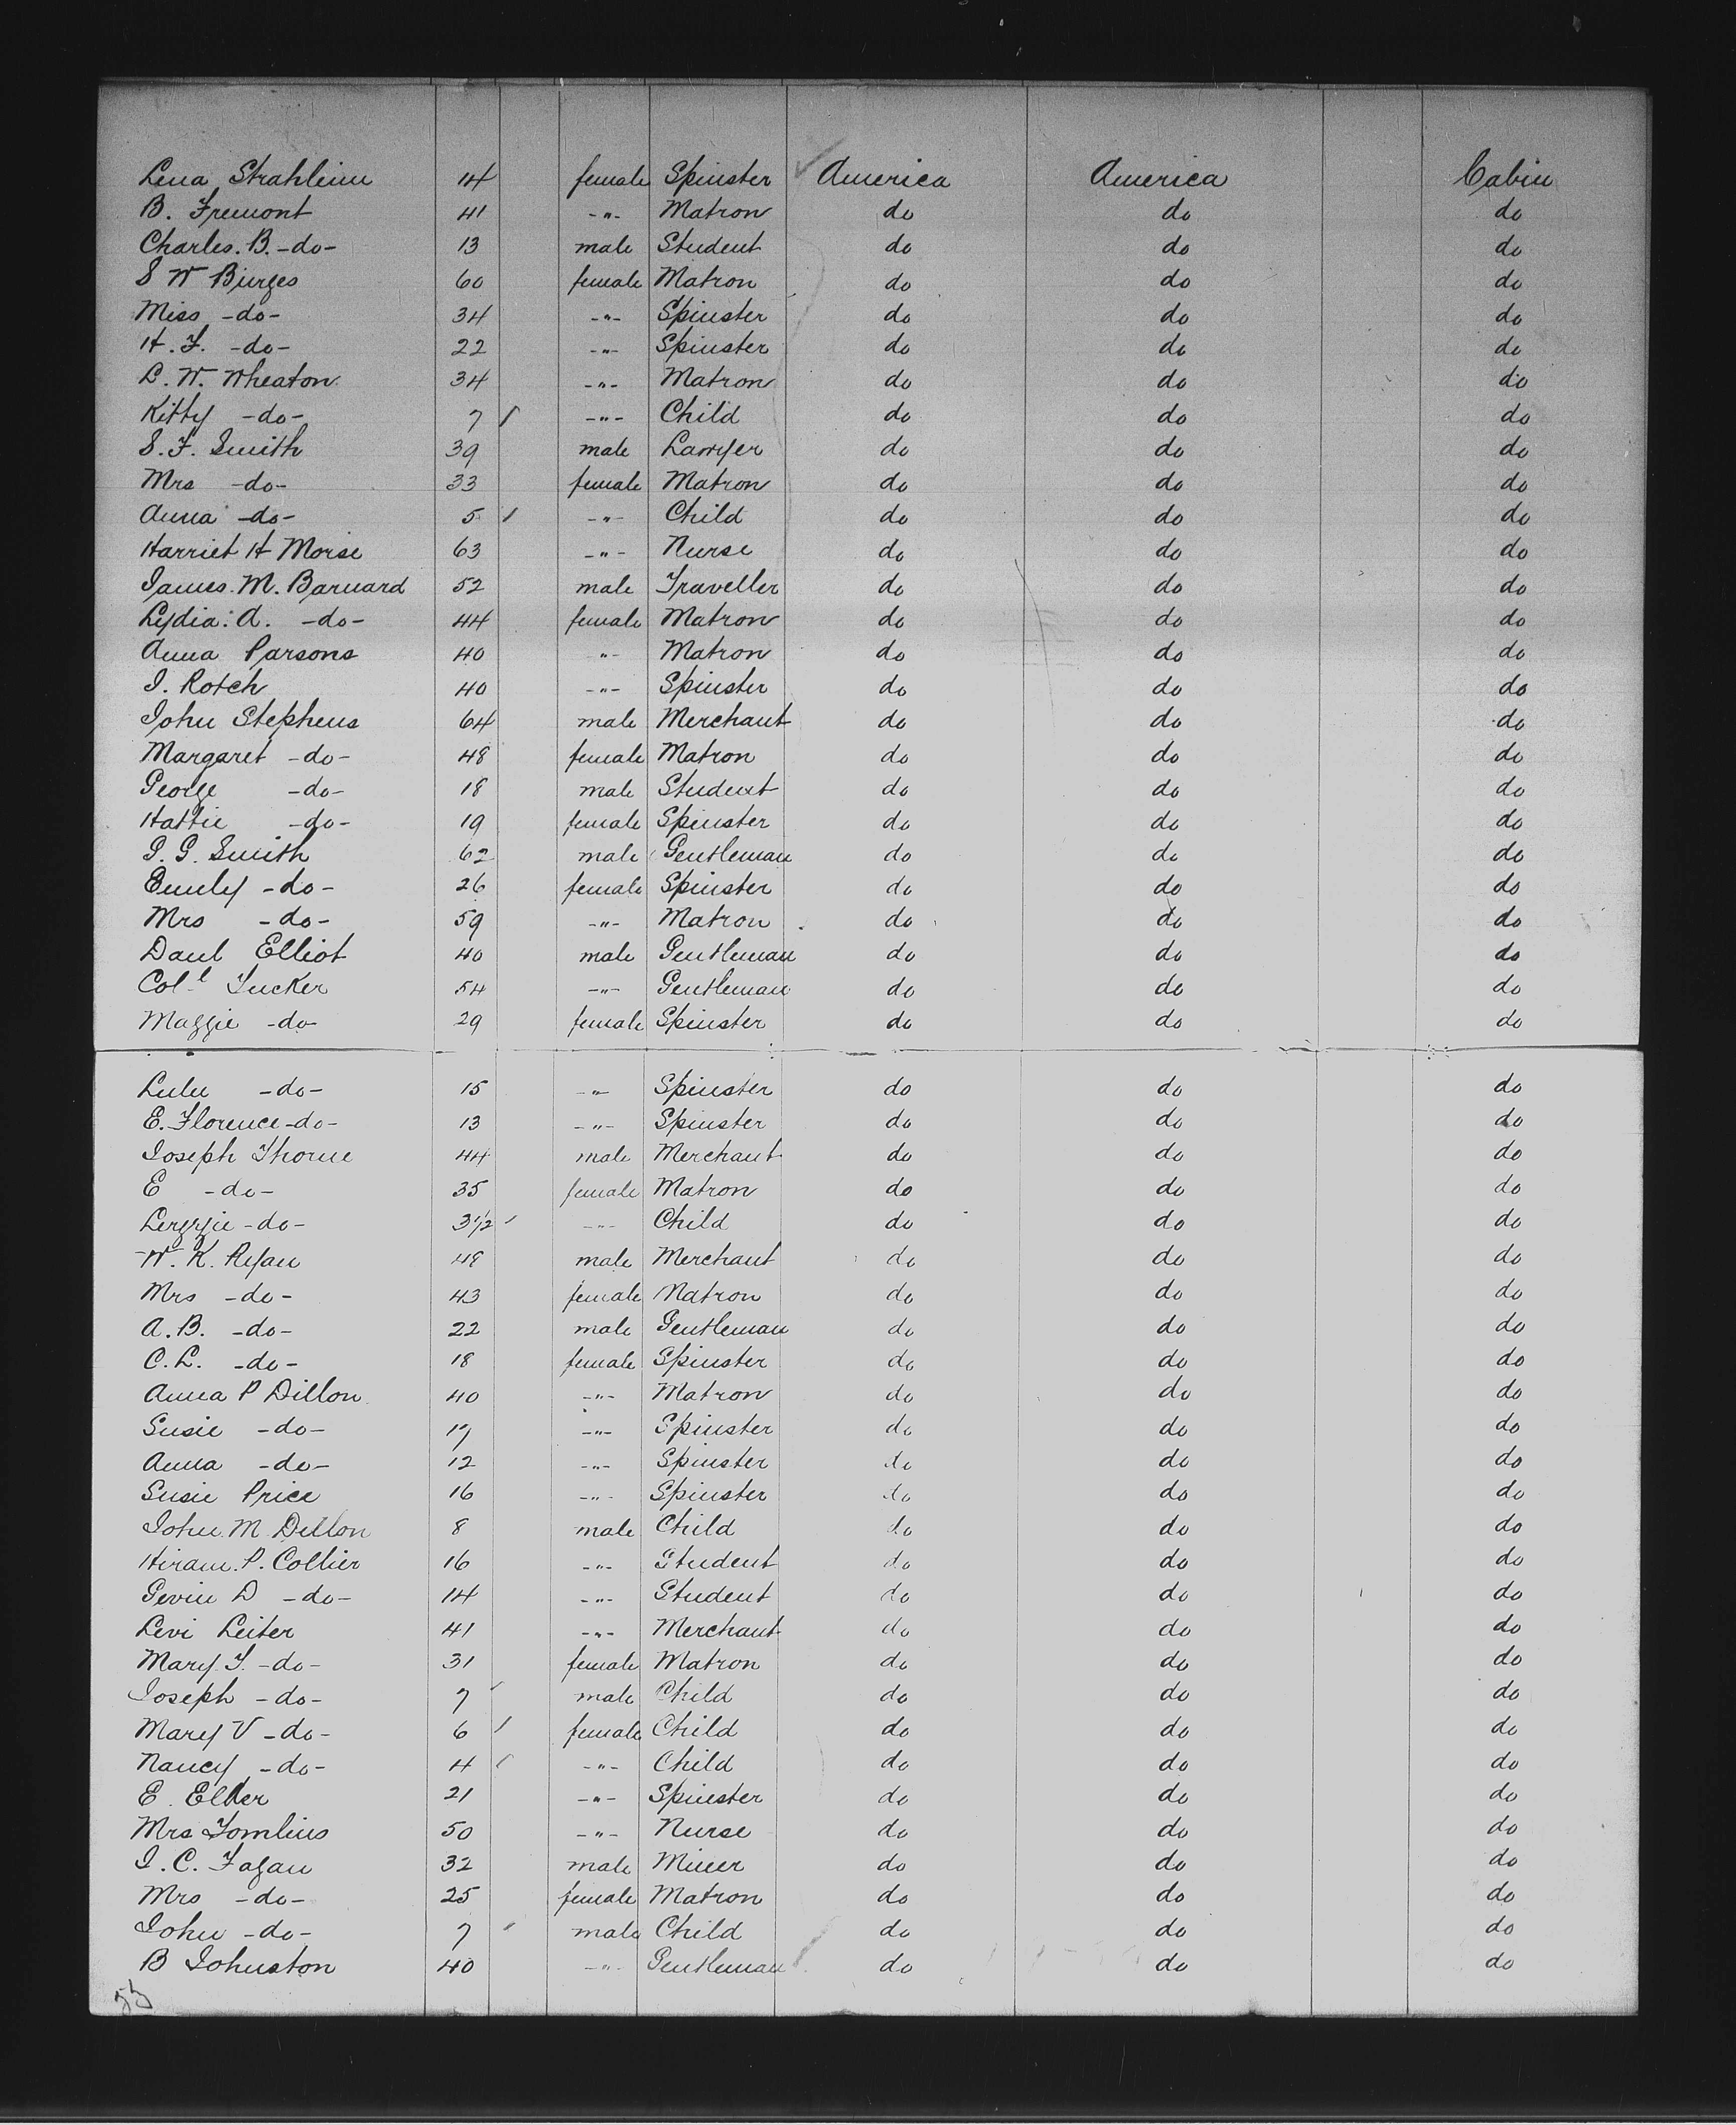 Lena Strahleim 14 female Spinster America America Cabin
B. Fremont 41 -"- Matron do do do
Charles. B. -do- 13 male Student do do do
S W Burges 60 female Matron do do do
Miss -do- 34 -"- Spinster do do do
H. F. -do- 22 -"- Spinster do do do
L. W. Wheaton 34 -"- Matron do do do
Kitty -do- 7 -"- Child do do do
S. F. Smith 39 male Lawyer do do do
Mrs -do- 33 female Matron do do do
Anna -do- 5 -"- Child do do do
Harriet H Morse 63 -"- Nurse do do do
James. M. Barnard 52 male Traveller do do do
Lydia. A. -do- 44 female Matron do do do
Anna Parsons 40 -"- Matron do do do
J. Rotch 40 -"- Spinster do do do
John Stephens 64 male Merchant do do do
Margaret -do- 48 female Matron do do do
George -do- 18 male Student do do do
Hattie -do- 19 female Spinster do do do
G. G. Smith 62 male Gentleman do do do
Emily -do- 26 female Spinster do do do
Mrs -do- 59 -"- Matron do do do
Danl Elliot 40 male Gentleman do do do
Col-l Tucker 54 -"- Gentleman do do do
Maggie -do- 29 female Spinster do do do
Lulu -do- 15 -"- Spinster do do do
E. Florence -do- 13 -"- Spinster do do do
Joseph Thorne 44 male Merchant do do do
E -do- 35 female Matron do do do
-do- 3 1/2 -"- Child do do do
W. K. Ryan 48 male Merchant do do do
Mrs -do- 43 female Matron do do do
A. B. -do- 22 male Gentleman do do do
C. L. -do- 18 female Spinster do do do
Anna P Dillon 40 -"- Matron do do do
Susie -do- 17 -"- Spinster do do do
Anna -do- 12 -"- Spinster do do do
Susie Price 16 -"- Spinster do do do
John. M. Dillon 8 male Child do do do
Hiram. P. Collier 16 -"- Student do do do
D -do- 14 -"- Student do do do
Levi Leiter 41 -"- Merchant do do do
Mary. T. -do- 31 female Matron do do do
Joseph -do- 7 male Child do do do
Mary V -do- 6 female Child do do do
Nancy -do- 4 -"- Child do do do
E. 21 -"- Spinster do do do
Mrs Tomlins 50 -"- Nurse do do do
J. C. Fagan 32 male Miner do do do
Mrs -do- 25 female Matron do do do
John -do- 7 male Child do do do
B Johnston 40 -"- Gentleman do do do
53